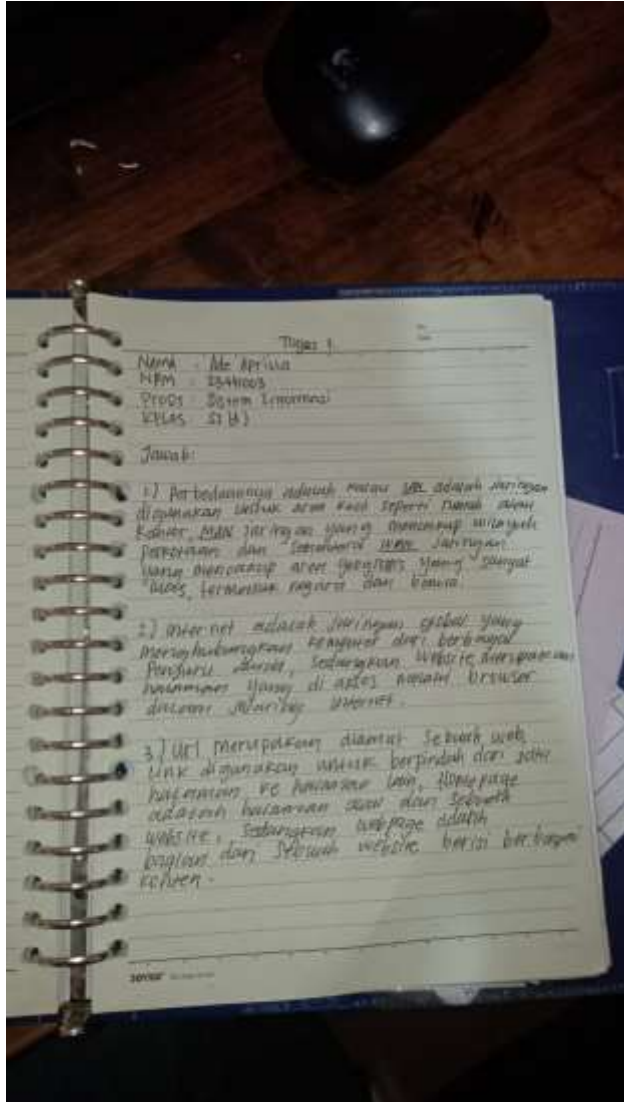 Tugas 1.
Nama : Ade Aprilia
NPM : 23441003
Prodi : Sistem Informasi
Kelas : SI (A)
Jawab:
1) Perbedaannya adalah kalau LAN adalah jaringan
digunakan untuk area kecil seperti rumah atau
kantor, MAN jaringan yang mencakup wilayah
perkotaan dan sementara WAN jaringan
yang mencakup area geografis yang sangat
luas, termasuk negara dan benua.
2.) Internet adalah jaringan global yang
menghubungkan komputer dari berbagai
penjuru dunia, sedangkan website merupakan
halaman yang di akses melalui browser
dalam jaringan internet.
3.) Url merupakan alamat sebuah web,
link digunakan untuk berpindah dari satu
halaman ke halaman lain, Homepage
adalah halaman awal dari sebuah
website, sedangkan webpage adalah
bagian dari sebuah website berisi berbagai
konten.